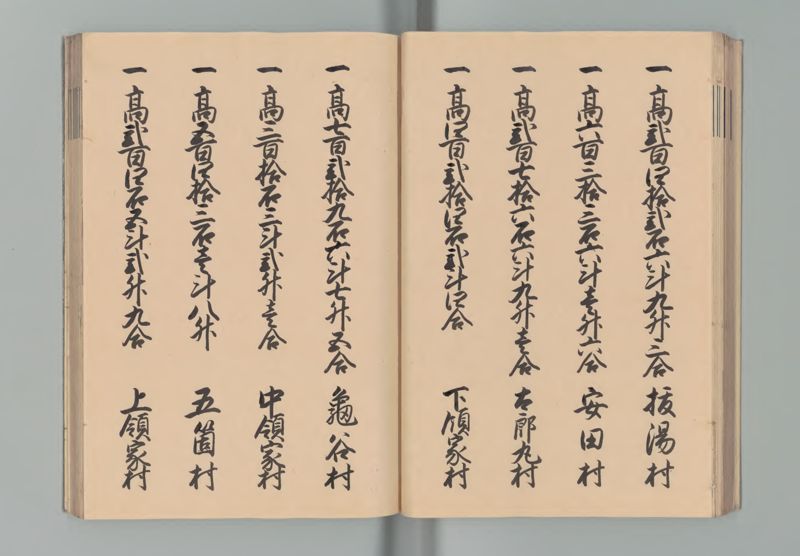 一高弐百四拾弐石六斗九升三合 抜湯村
一高六百三拾三石六斗壱升六合 安田村
一高弐百七拾六石六斗九升壱合 太郎丸村
一高四百弐拾四石弐斗四合 下領家村
一高七百弐拾九石六斗七升五合 亀谷村
一高三百拾石三斗弐升壱合 中領家村
一高五百四拾三石壱斗八升 五箇村
一高弐百四石五斗弐升九合 上領家村